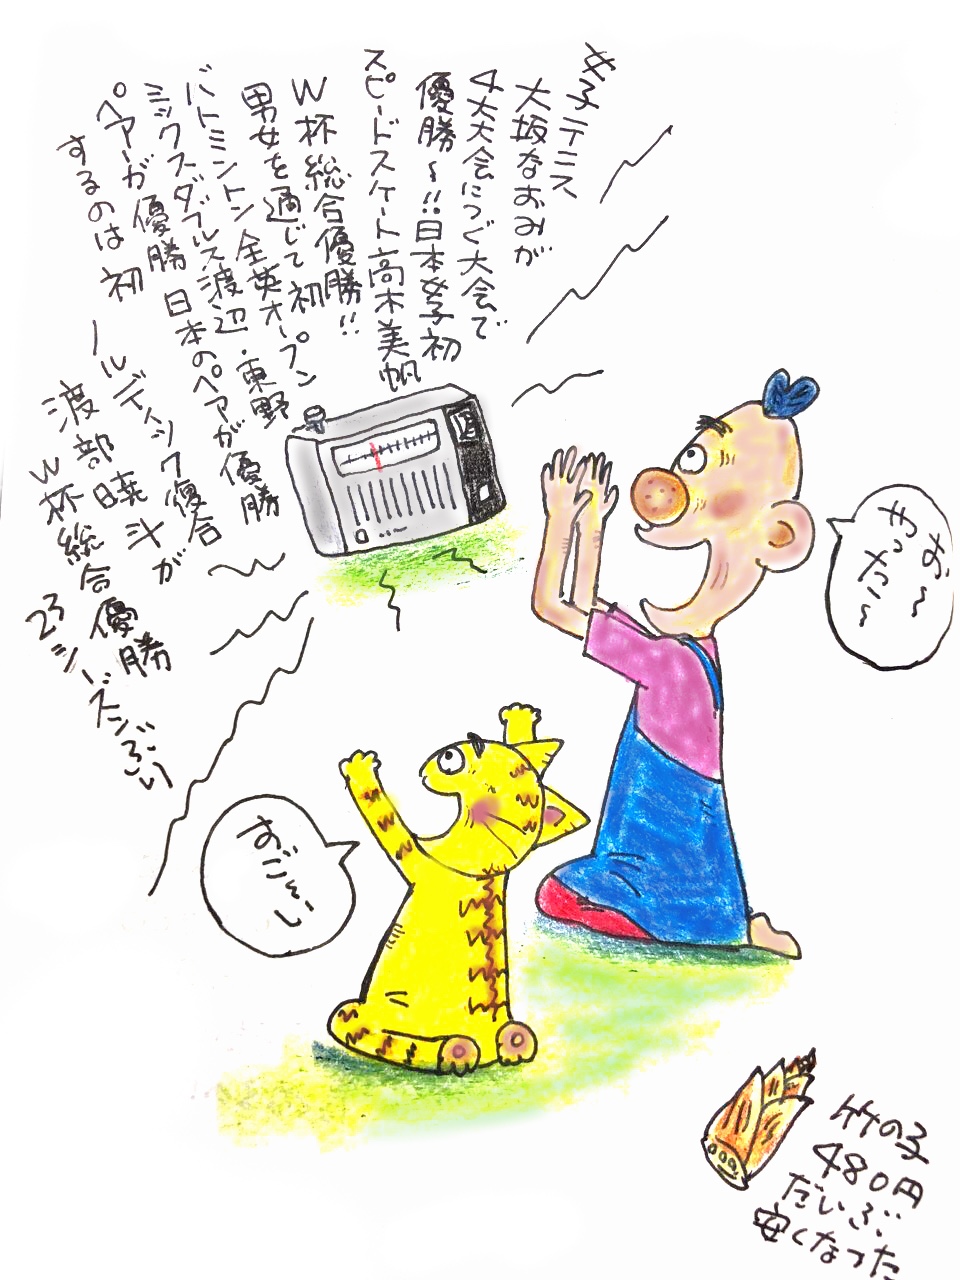 女子テニス
大坂なおみが
4大大会につぐ大会で
優勝〜!!日本女子初
スピードスケート高木美帆
W杯総合優勝!!
男女を通じて初
バトミントン全英オープン
ミックスダブルス渡辺・東野
ペアーが優勝 日本のペアが優勝
するのは初
ノルディック復合
渡部暁斗が
W杯総合優勝
23シーズンぶり
お〜
きったこ〜
すごぉい
竹の子
480円
だいぶ
安くなった